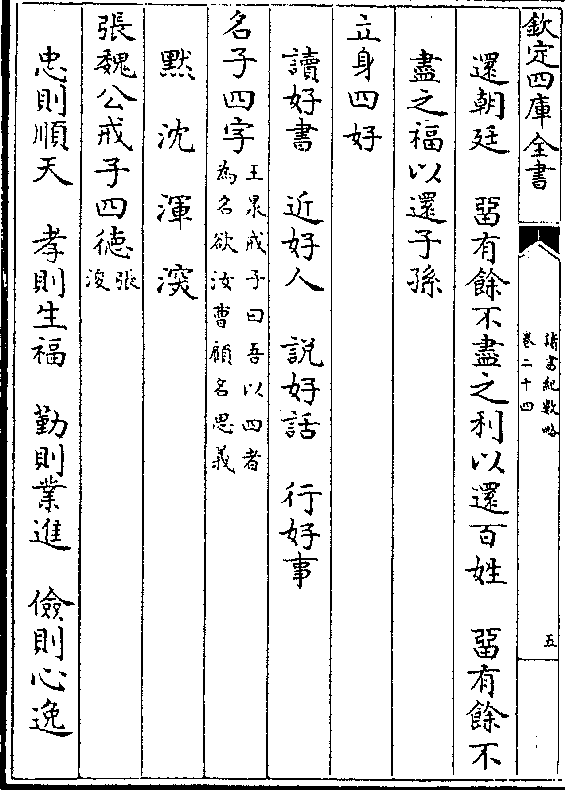 欽定四庫全書
讀書紀數略
卷二十四
五
還朝廷　畱有餘不盡之利以還百姓　畱有餘不
盡之福以還子孫
立身四好
讀好書　近好人　説好話　行好事
名子四字
王昶戒子曰吾以四者
為名欲汝曹顧名思義
黙　沈　渾　深
張魏公戒子四德
張
浚
忠則順天　孝則生福　勤則業進　儉則心逸